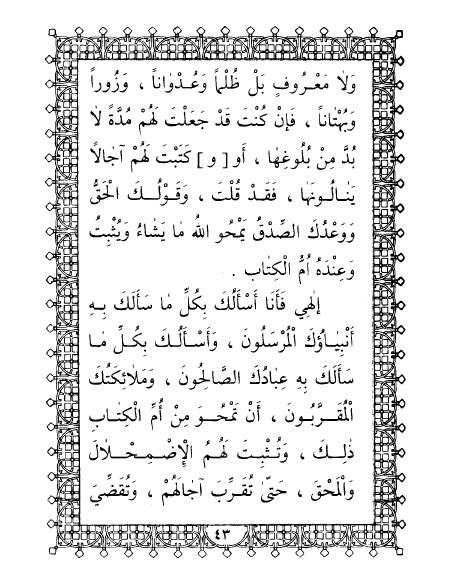 وَلاٰ مَعْرُوفٍ بَلْ ظُلْماً وَعُدْوٰاناً ، وَزُوراً
وَبُهْتٰاناً ، فَإِنْ كُنْتَ قَدْ جَعَلْتَ لَهُمْ مُدَّةً لاٰ
بُدَّ مِنْ بُلُوغِهٰا ، أَو [ و ] كَتَبْتَ لَهُمْ آجٰالًا
يَنٰالُونَهٰا ، فَقَدْ قُلْتَ ، وَقَوْلُكَ الْحَقُّ
وَوَعْدُكَ الصِّدْقُ يَمْحُو اللهُ مٰا يَشٰاءُ وَيُثْبِتُ
وَعِنْدَهُ أُمُّ الْكِتٰابِ .
إِلٰهِي فَأَنَا أَسْأَلُكَ بِكُلِّ مٰا سَأَلَكَ بِهِ
أَنْبِيٰاؤُكَ الْمُرْسَلُونَ ، وَأَسْأَلُكَ بِكُلِّ مٰا
سَأَلَكَ بِهِ عِبٰادُكَ الصَّالِحُونَ ، وَمَلاٰئِكَتُكَ
الْمُقَرَّبُونَ ، أَنْ تَمْحُوَ مِنْ أُمِّ الْكِتٰابِ
ذٰلِكَ ، وَتُثْبِتَ لَهُمُ الْإِضْمِحْلاٰلَ
وَالْمَحْقَ ، حَتّىٰ تُقَرِّبَ آجٰالَهُمْ ، وَتُقَضِّيَ
٤٣